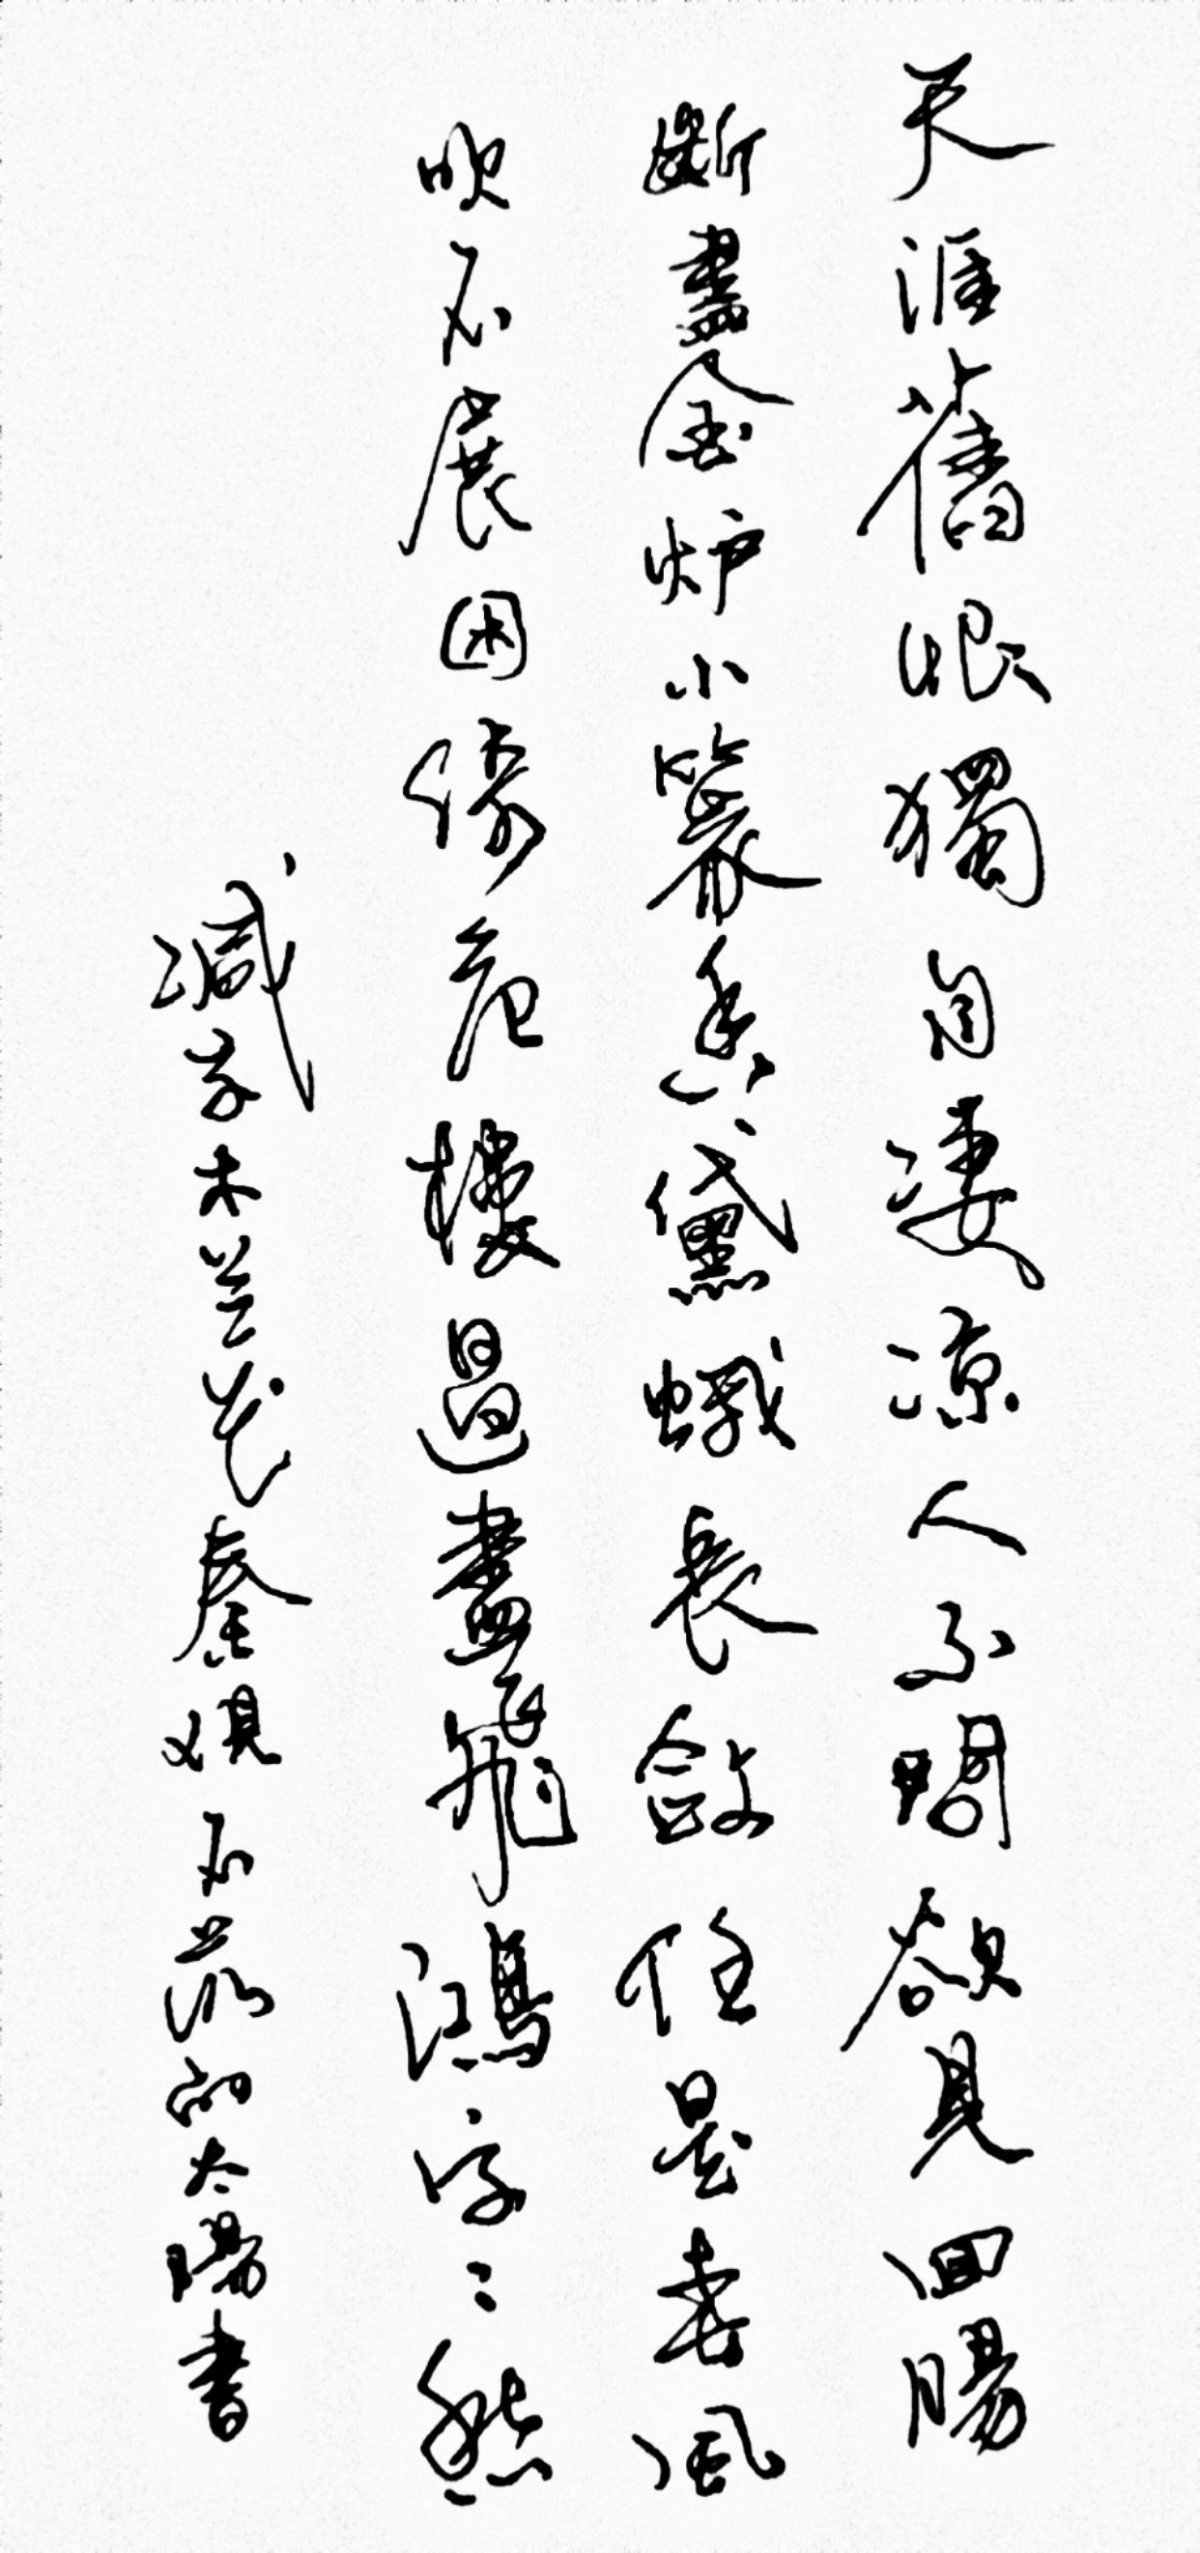 天涯舊恨獨自凄凉人不問欲見回腸
斷盡金炉小篆香黛蛾長斂任是春風
吹不展困倚危樓過盡飛鴻字〻愁
减字木兰花秦观不落的太陽書